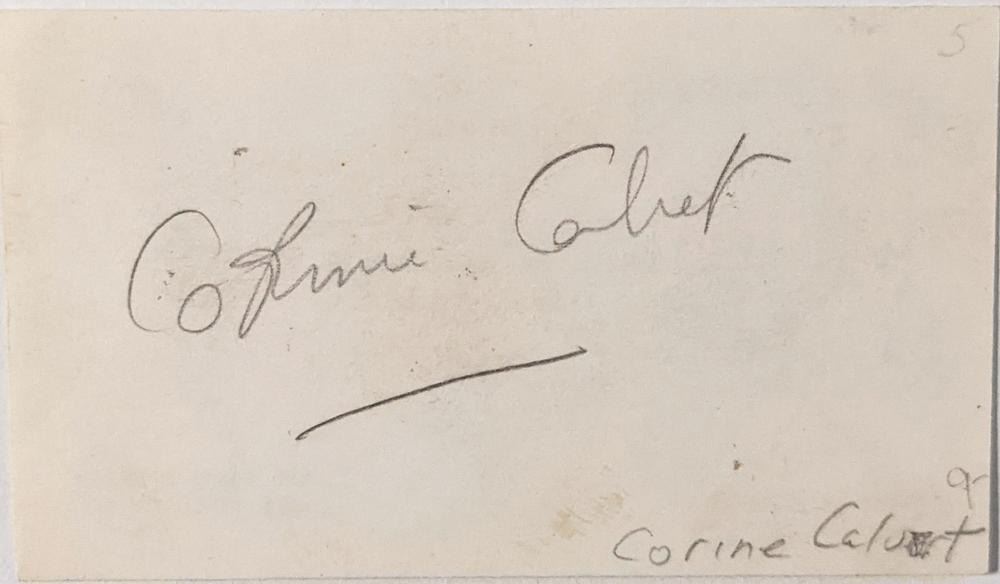 5
Corinne Calvet
Corine Calvet